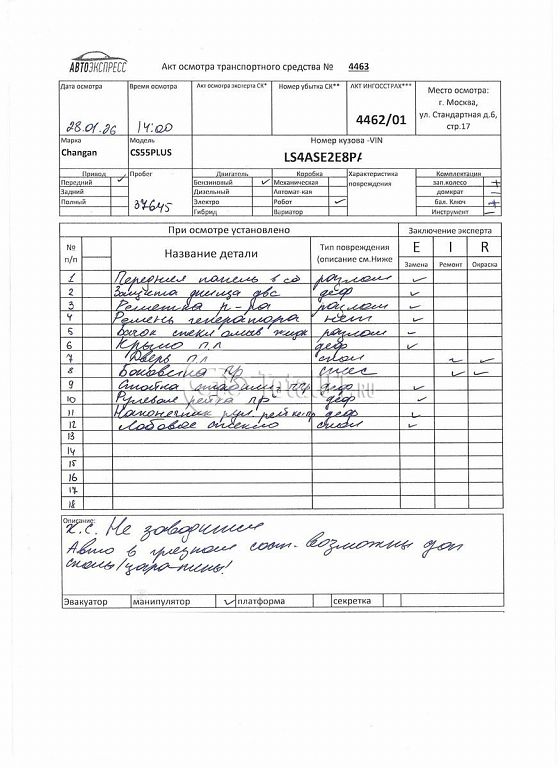 АВТОЭКСПРЕСС
Акт осмотра транспортного средства № 4463
Дата осмотра Время осмотра Акт осмотра эксперта СК* Номер убытка СК** АКТ ИНГОССТРАХ*** Место осмотра:
г. Москва,
ул. Стандартная д.6,
стр.17
28.01.26 14:00 4462/01
Марка Модель Номер кузова -VIN
Changan CS55PLUS LS4ASE2E8PA
Привод Пробег Двигатель Коробка Характеристика повреждения Комплектация
Передний ✓ Бензиновый ✓ Механическая зап.колесо +
Задний Дизельный Автомат-кая домкрат –
Полный 37645 Электро Робот ✓ бал. Ключ +
Гибрид Вариатор Инструмент –
При осмотре установлено Заключение эксперта
№ п/п Название детали Тип повреждения (описание см.Ниже E I R
Замена Ремонт Окраска
1 Передняя панель в сб разлом ✓
2 Защита днища двс деф ✓
3 Решетка р-ра разлом ✓
4 Ремень генератора нет ✓
5 Бачок стеклоомыв жидк разлом ✓
6 Крыло п.л деф ✓
7 Дверь п.л скол ✓ ✓
8 Боковина пр ✓ ✓
9 Стойка стабилиз. пр деф ✓
10 Рулевая рейка пр деф ✓
11 Наконечник рул рейки пр деф ✓
12 Лобовое стекло скол ✓
13
14
15
16
17
18
Описание:
К.С. Не заводится
Авто в грязном сост. Возможны доп
сколы/царапины!
Эвакуатор манипулятор ✓ платформа секретка